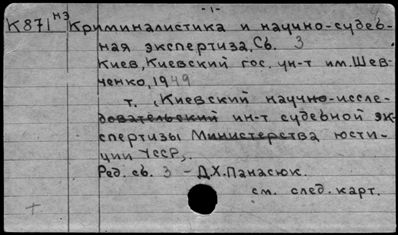 -1-
К871 нэ Криминалистика и научно-судеб-
ная экспертиза, Сб. 3
Киев, Киевский гос. ун-т им. Шев-
ченко, 1949
т. , Киевский научно-иссле-
довательский ин-т судебной эк-
спертизы Министерства юсти-
ции УССР,.
Ред. сб. 3 - Д.Х. Панасюк.
см. след. карт.